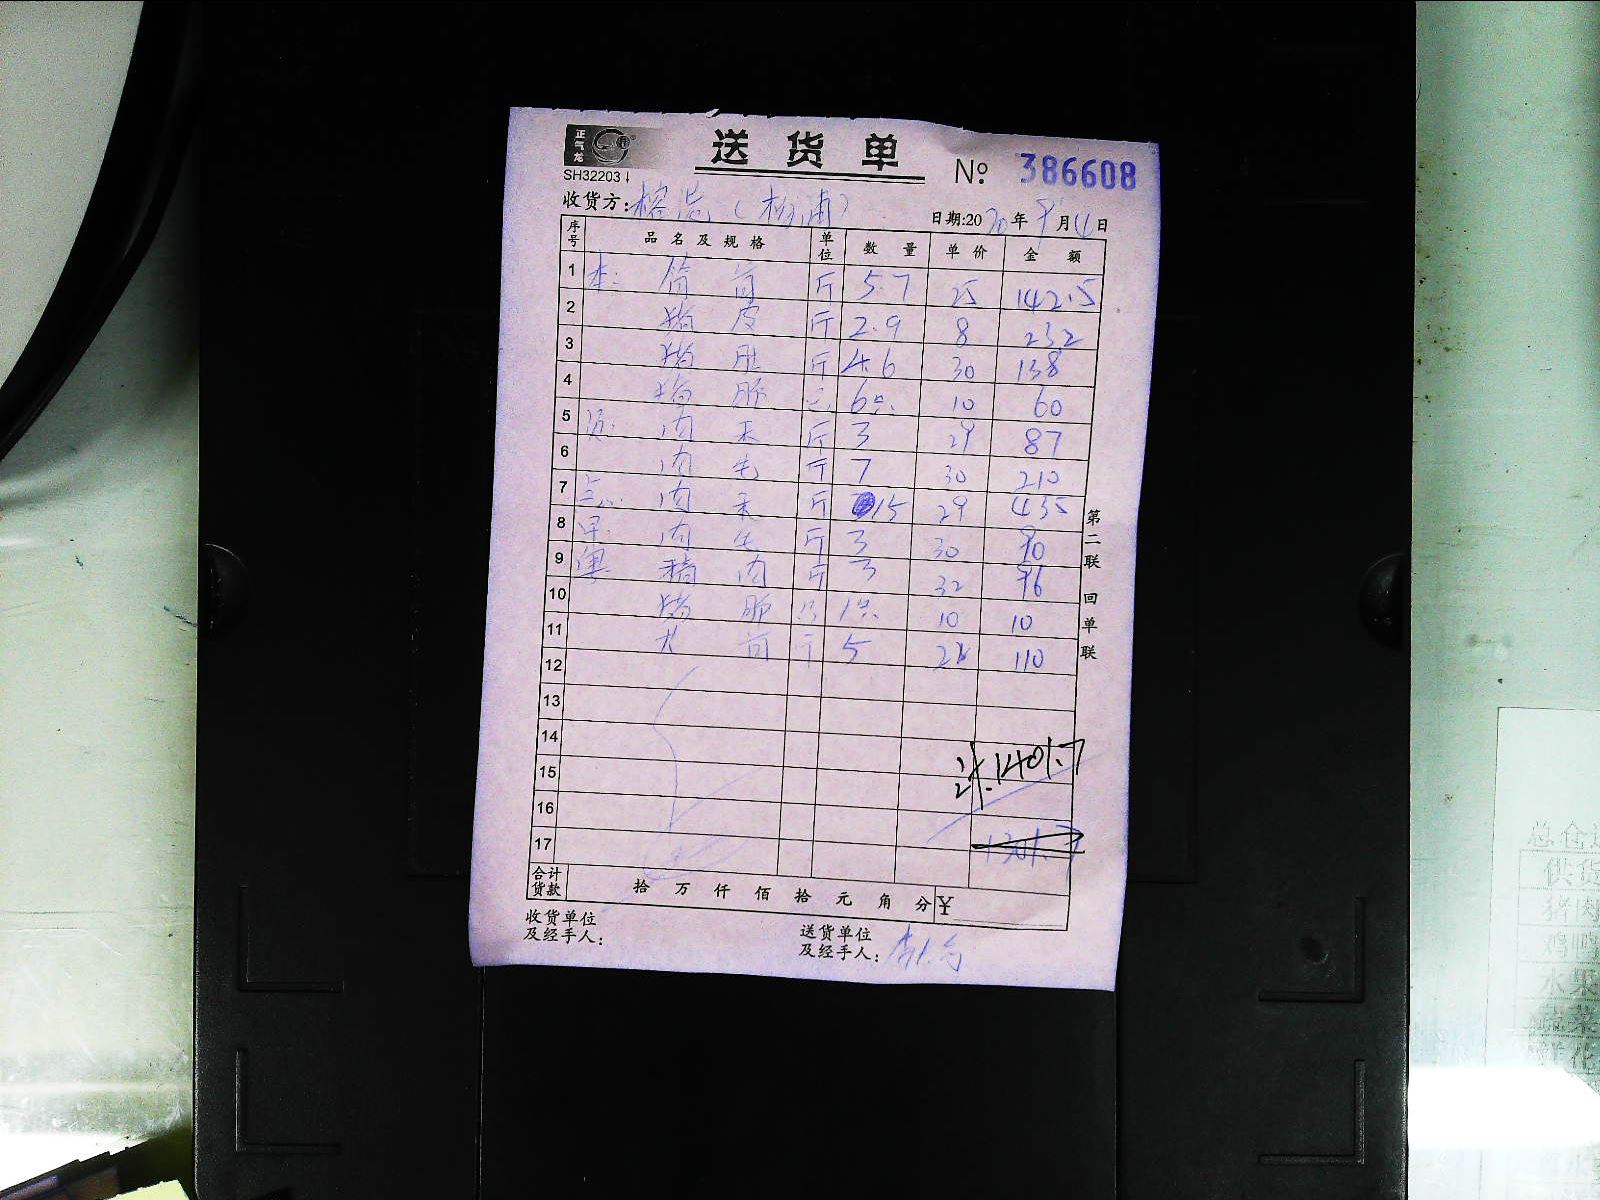 正气龙
送货单
№ 386608
SH32203
收货方: 榕港（杨浦）
日期:2020年9月4日
序号 品名及规格 单位 数量 单价 金额
1 本: 筒 斤 5.7 25 142.5
2 猪皮 斤 2.9 8 23.2
3 猪肚 斤 4.6 30 138
4 猪脚 只 6只 10 60
5 肉 斤 3 29 87
6 肉 斤 7 30 210
7 肉 斤 15 29 435
8 早 肉 斤 3 30 90
9 粤 精肉 斤 3 32 96
10 猪脚 只 1只 10 10
11 大 斤 5 22 110
12
13
14
15 计.1401.7
16
17 1301.7
合计货款 拾 万 仟 佰 拾 元 角 分 ¥
收货单位及经手人:
送货单位及经手人:
第二联 回单联
总仓
供货
猪肉
鸡鸭
水果
蔬菜
鲜花